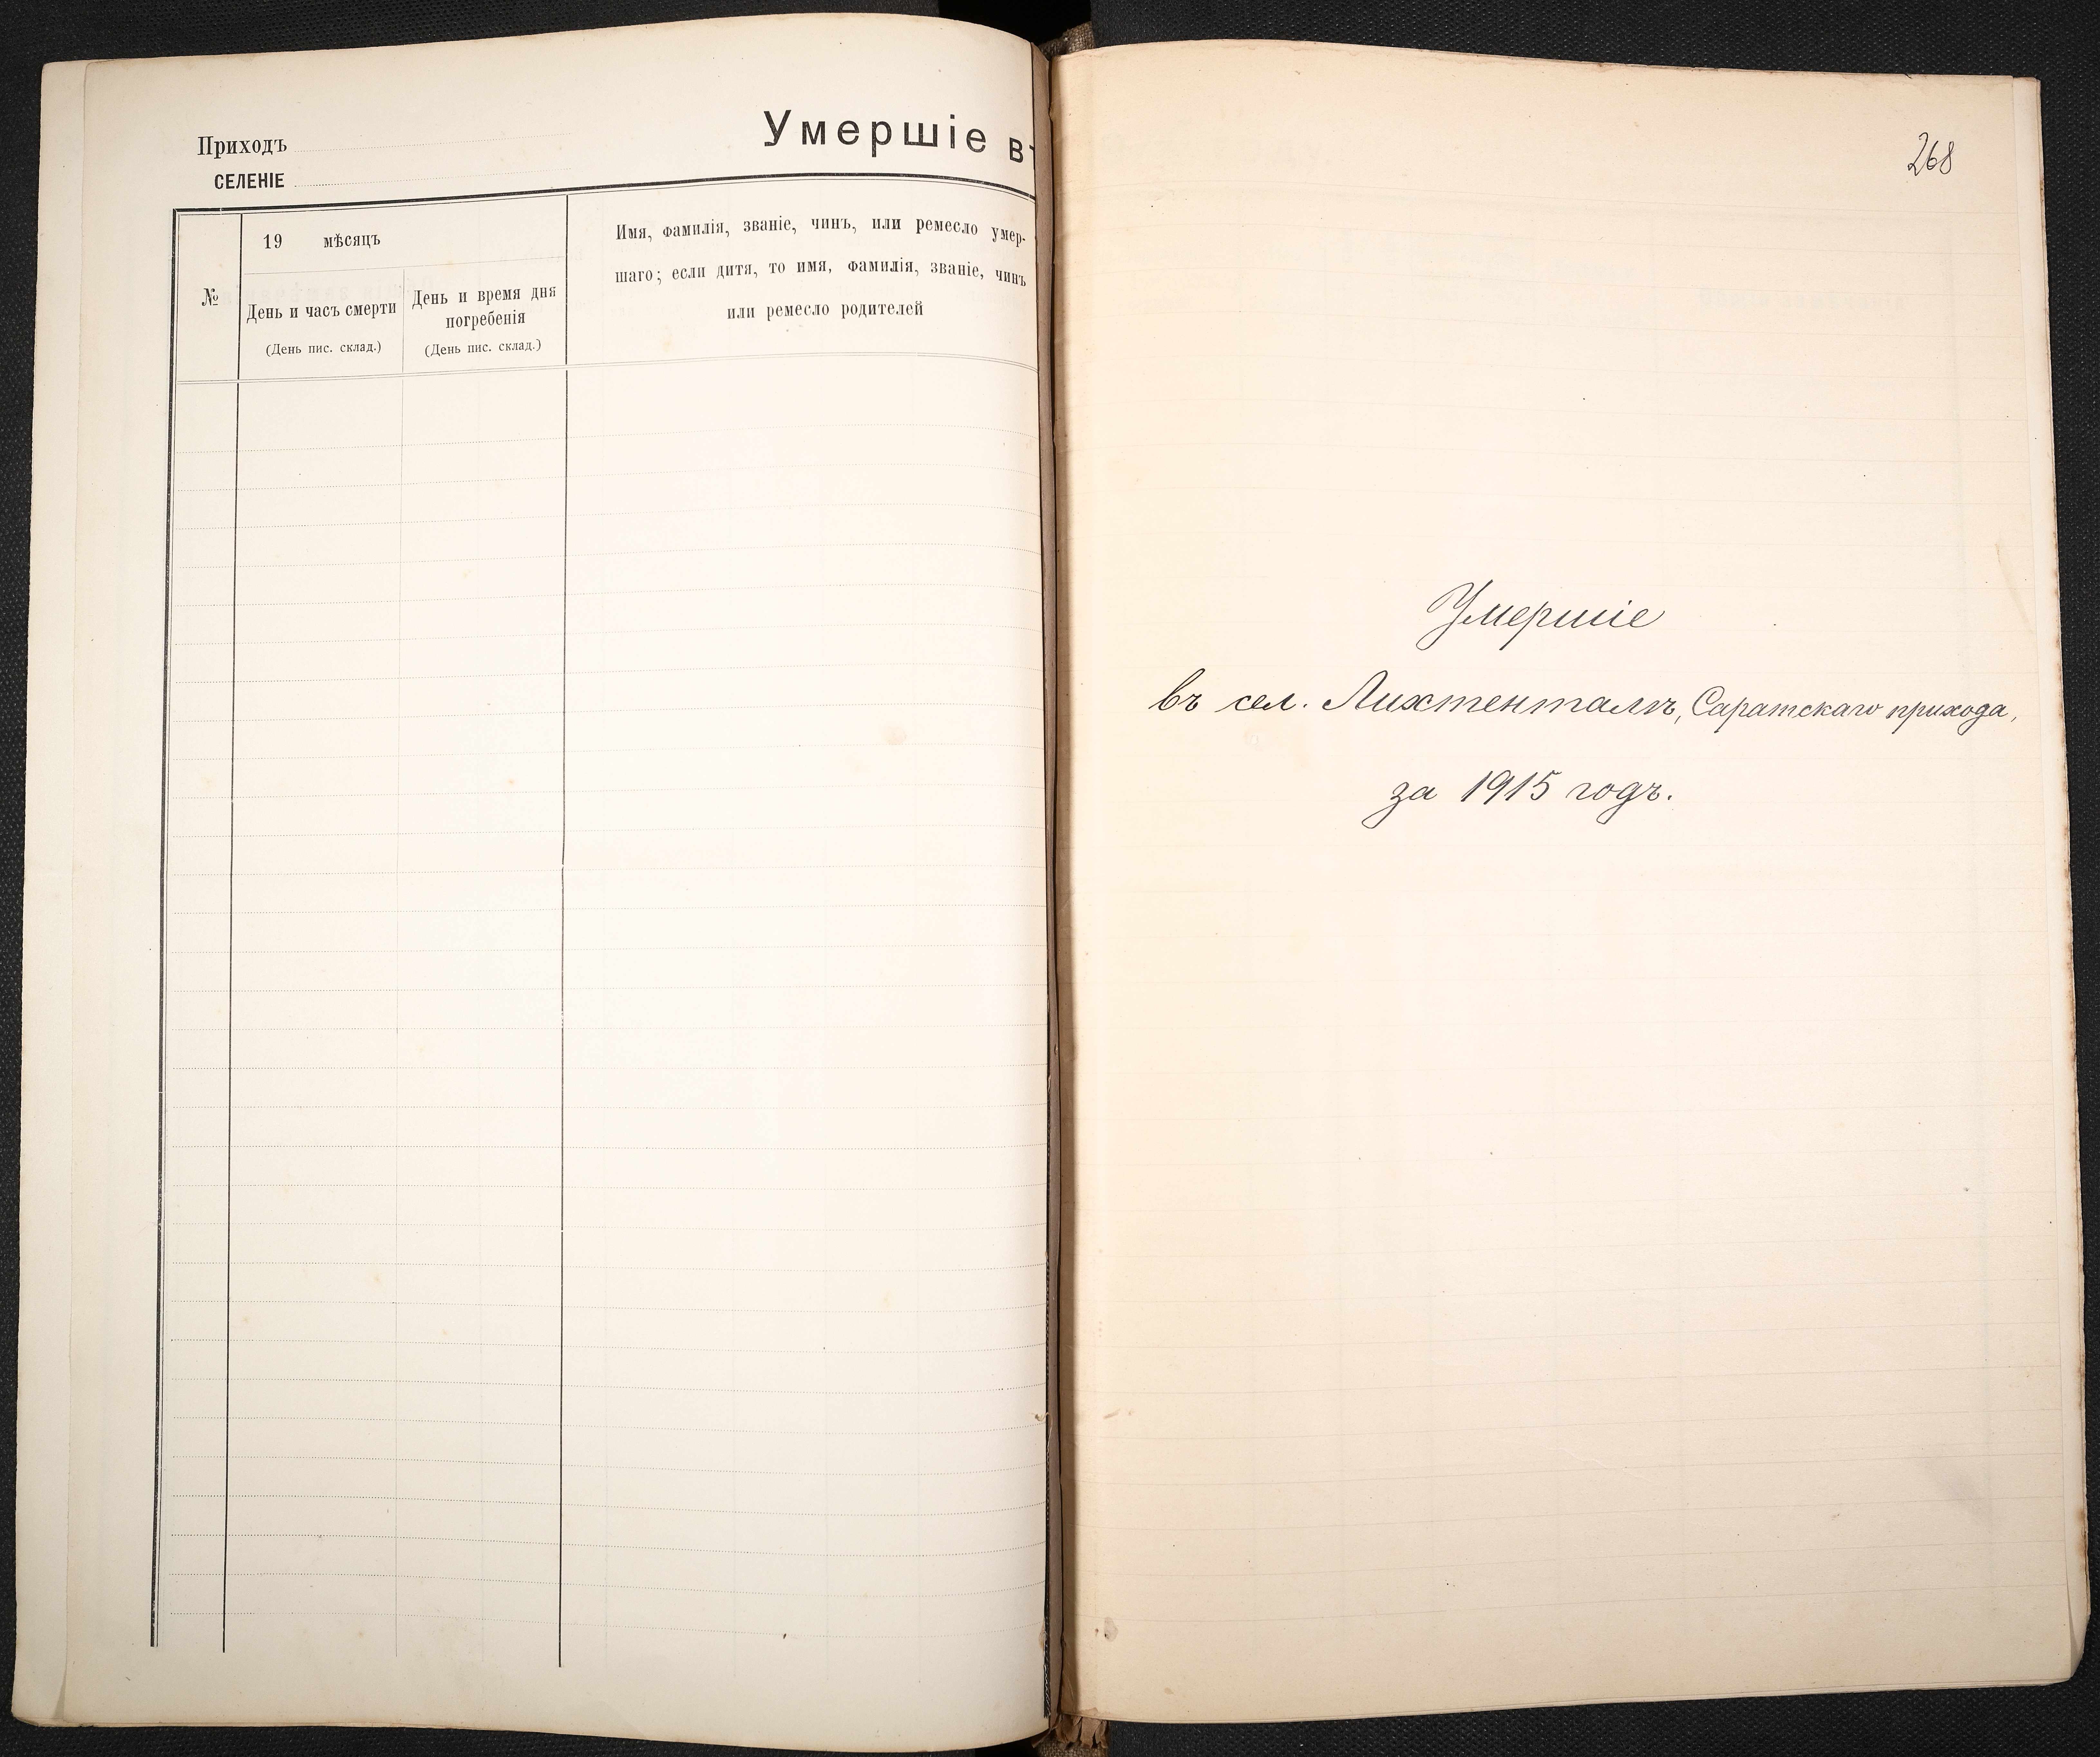 Приходъ
СЕЛЕНІЕ
Умершіе въ
№
19 мѣсяцъ
День и часъ смерти
(День пис. склад.)
День и время дня
погребенія
(День пис. склад.)
Имя, фамилія, званіе, чинъ, или ремесло умер-
шаго; если дитя, то имя, фамилія, званіе, чинъ
или ремесло родителей
268
Умершіе
въ сел. Лихтенталѣ, Саратскаго прихода,
за 1915 годъ.